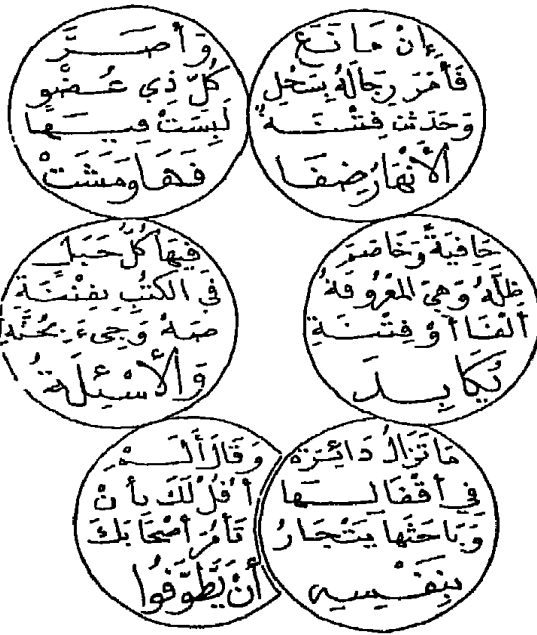 إِنْ مَانَعَ
فَأَمَرَ رِجَالَهُ بِسَحْلِ
وَحَدَثَتْ فِتْنَةُ
الأَنْهَارُ ضِفَا
وَأَصَرَّ
كُلّ ذِي عُضْوٍ
لَبِسَتْ فِيهَا
فَهَا وَمَشَتْ
حَافِيَةً وَخَاصَمَ
ظِلَّهُ وَهِيَ المَعْرُوفَةُ
أَلْفَا أَوْ فِتْنَةِ
يُكَابِدَ
فِيهَا كُلّ حَبَل
فِي الكُتُبِ بِفِتْنَةِ
صَهُ وَجِيءَ بِجُثَّةِ
وَالأَسْئِلَةُ
مَا تَزَالُ دَائِرَةً
فِي أَقْفَالِهَا
وَبَاحِثُهَا يَتْجَارُ
بِنَفْسِهِ
وَقَالَ أَلَمْ
أَقُلْ لَكَ بِأَنْ
تَأْمُرَ أَصْحَابَكَ
أَنْ يَطَّوَّفُوا